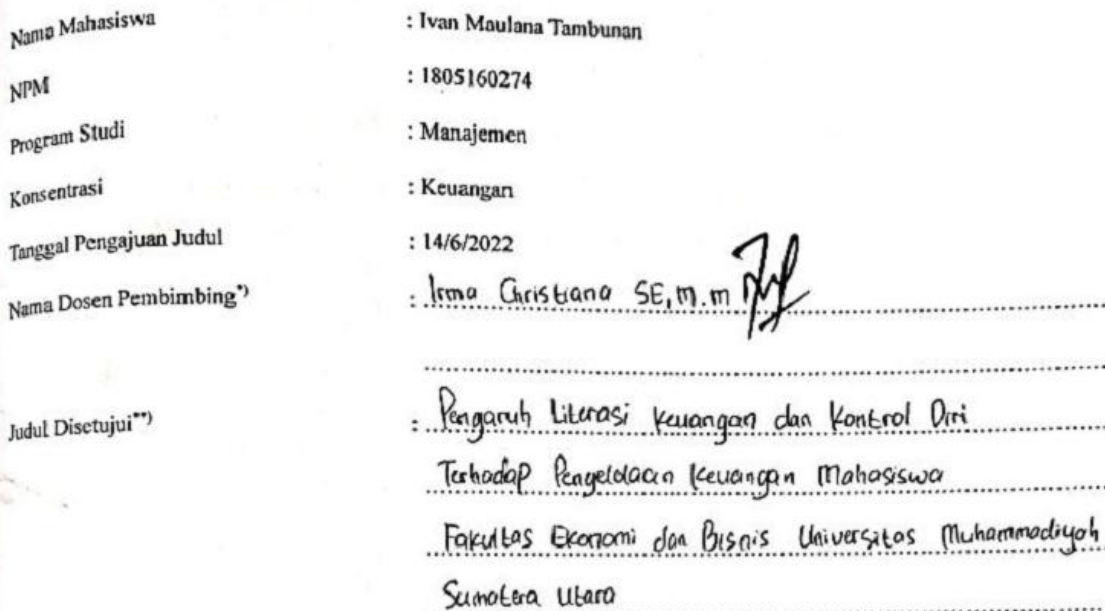 Nama Mahasiswa : Ivan Maulana Tambunan
NPM : 1805160274
Program Studi : Manajemen
Konsentrasi : Keuangan
Tanggal Pengajuan Judul : 14/6/2022
Nama Dosen Pembimbing*) : Irma Christiana SE, M.M
Judul Disetujui**) : Pengaruh Literasi Keuangan dan Kontrol Diri
Terhadap Pengelolaan Keuangan Mahasiswa
Fakultas Ekonomi dan Bisnis Universitas Muhammadiyah
Sumatera Utara